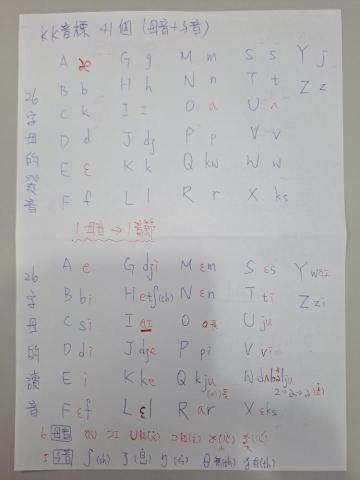 KK音標 41個 (母音+子音)
26字母的發音
A æ G g M m S s Y j
B b H h N n T t Z z
C k I ɪ O ɑ U ʌ
D d J dʒ P p V v
E ɛ K k Q kw W w
F f L l R r X ks
1母音→1音節
26字母的讀音
A e G dʒi M ɛm S ɛs Y waɪ
B bi H etʃ(ch) N ɛn T ti Z zi
C si I aɪ O o U ju
D di J dʒe P pi V vi
E i K ke Q kju W
F ɛf L ɛl R ar X ɛks
6 母音 aʊ ɔɪ
5 子音 ʃ(sh) ʒ ŋ θ ð